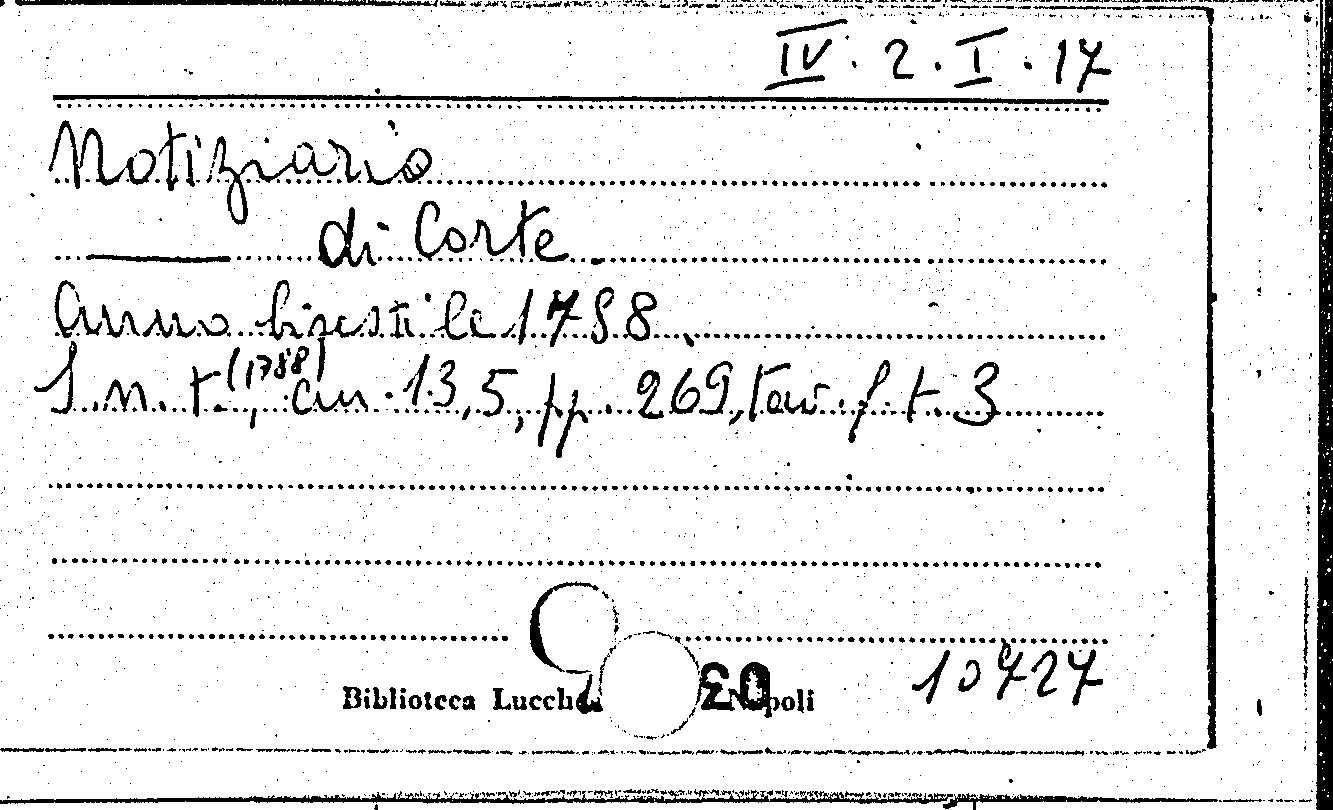 IV. 2. I. 17
Notiziario
di Corte.
Anno bisestile 1788.
S. n. t. (1788), cm. 13,5, pp. 269, tav. f. t. 3
Biblioteca Napoli
10727